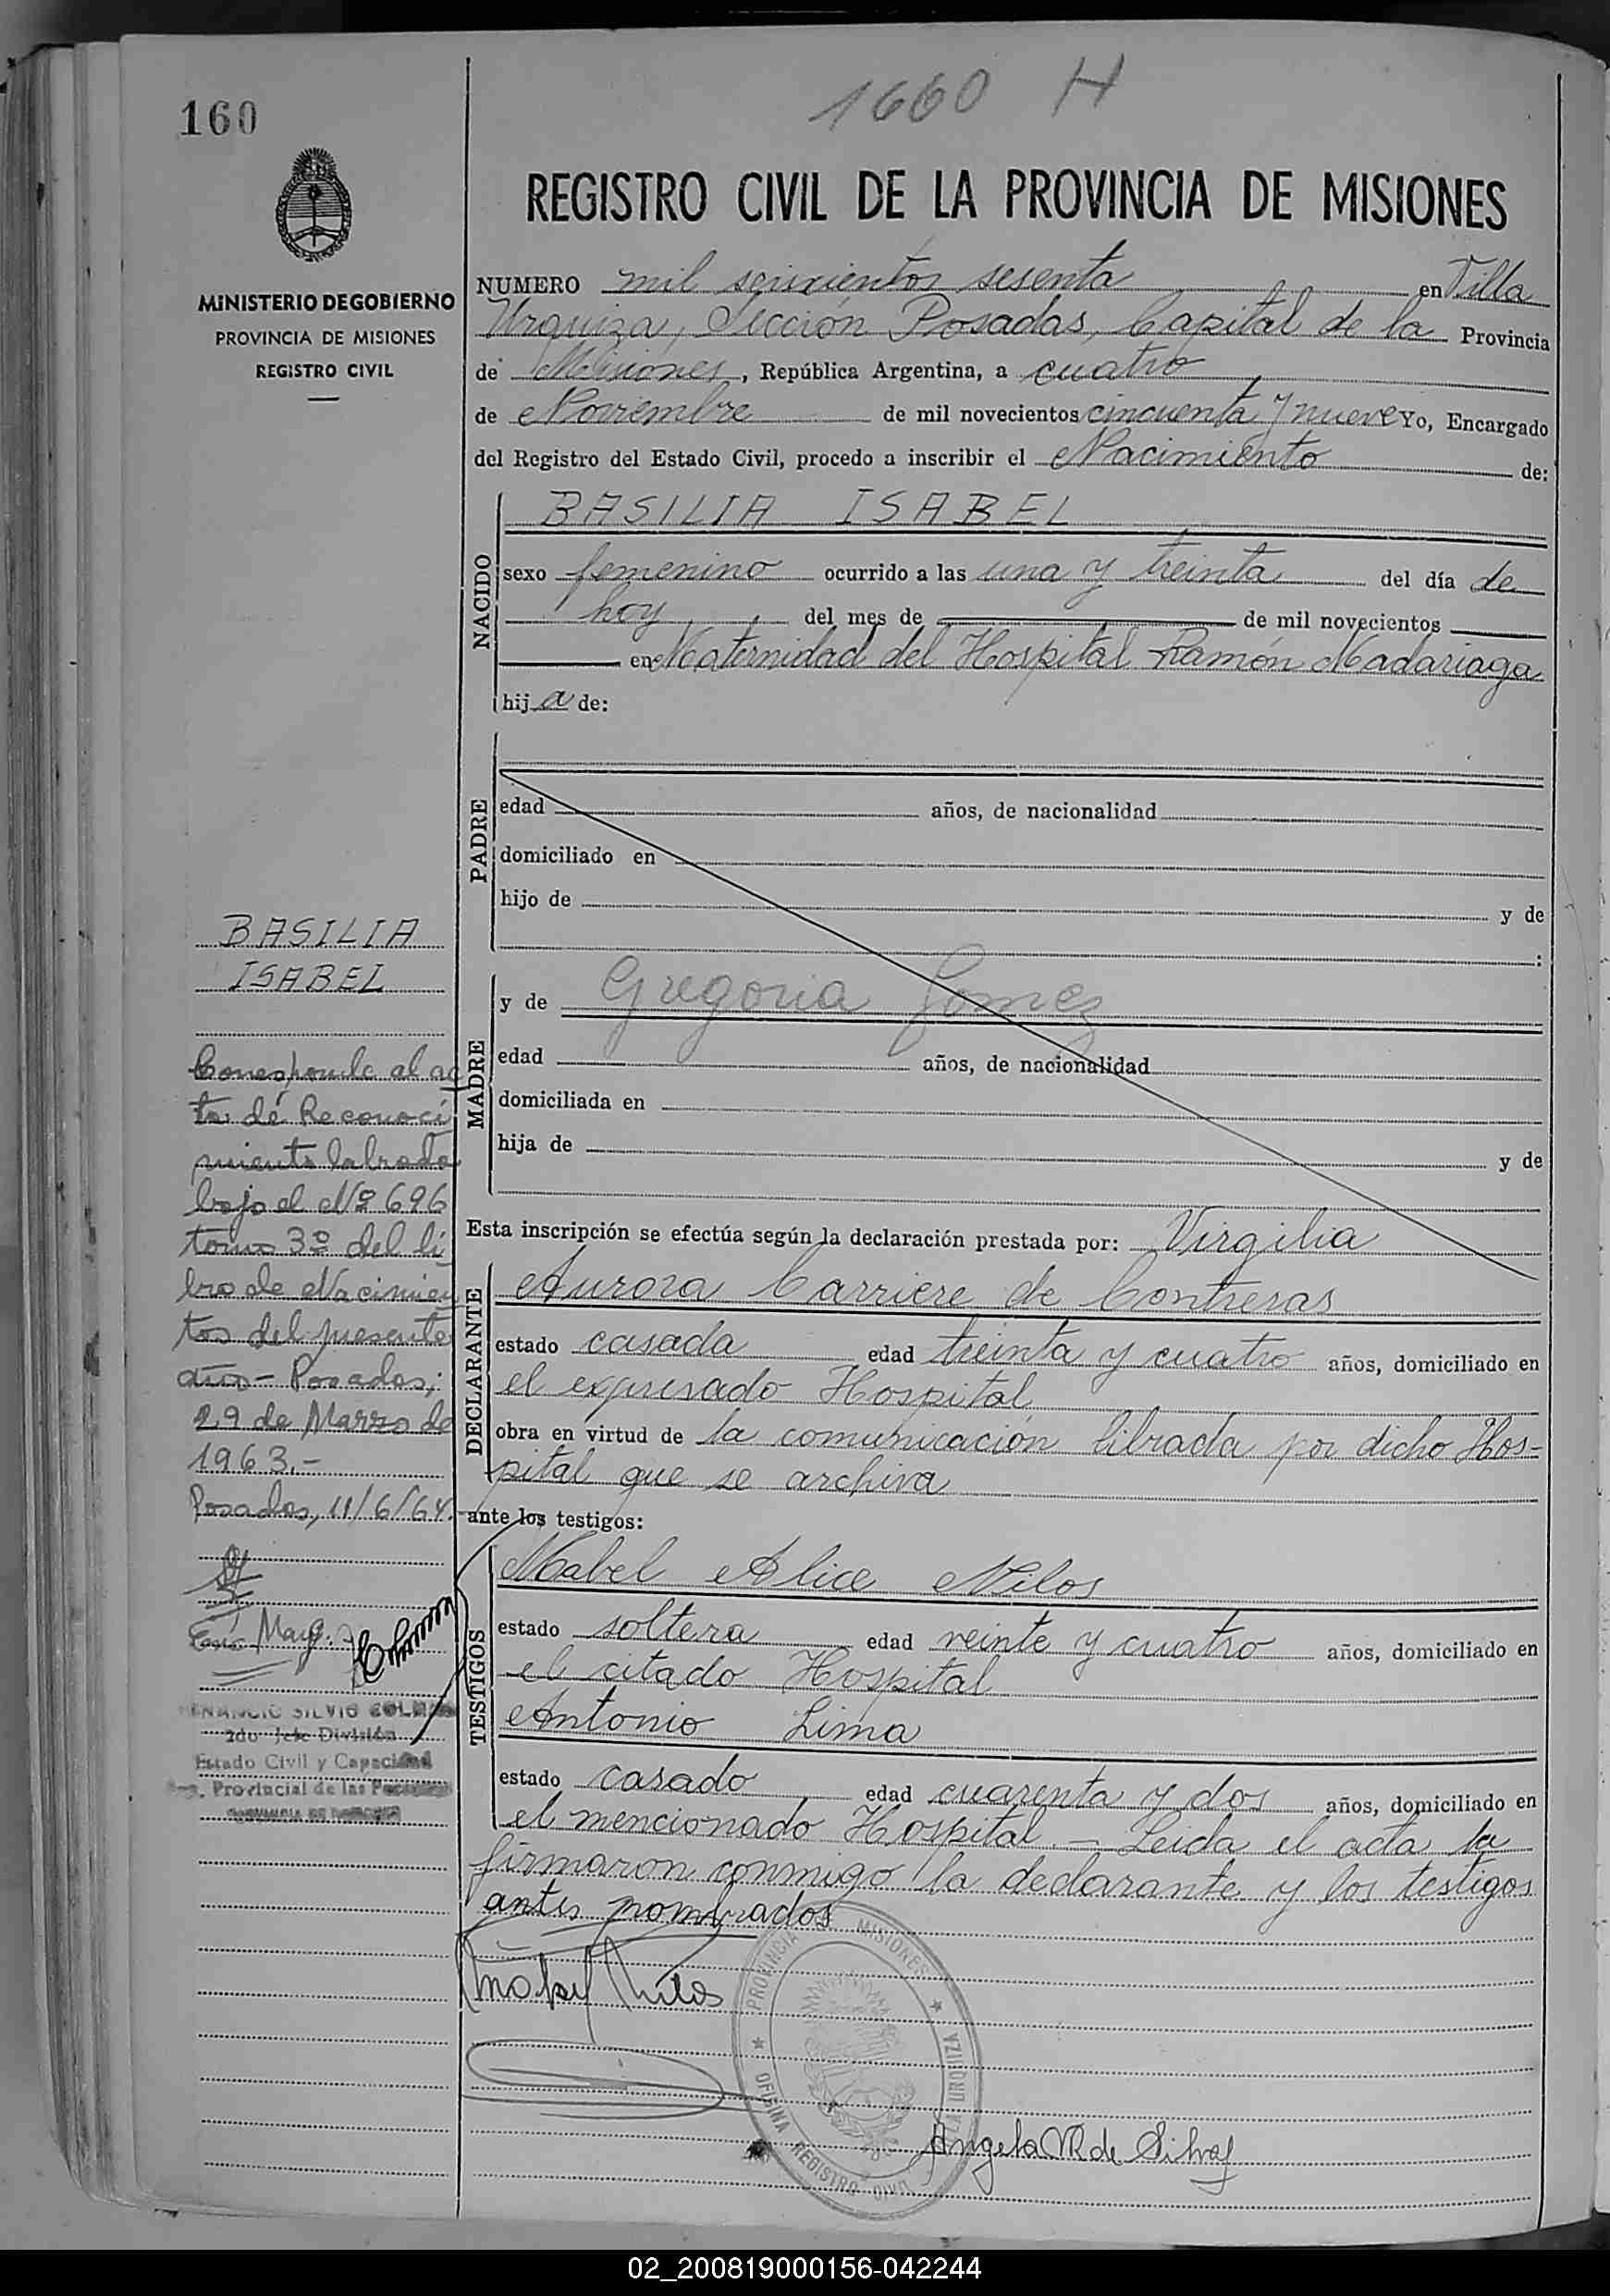 160
1660 H
MINISTERIO DE GOBIERNO
PROVINCIA DE MISIONES
REGISTRO CIVIL
REGISTRO CIVIL DE LA PROVINCIA DE MISIONES
NUMERO mil seiscientos sesenta en Villa
Urquiza, Sección Posadas, Capital de la Provincia
de Misiones, República Argentina, a cuatro
de Noviembre de mil novecientos cincuenta y nueve Yo, Encargado
del Registro del Estado Civil, procedo a inscribir el Nacimiento de:
NACIDO
BASILIA ISABEL
sexo femenino ocurrido a las una y treinta del día de
hoy del mes de de mil novecientos
en Maternidad del Hospital Ramón Madariaga
hij a de:
PADRE
edad años, de nacionalidad
domiciliado en
hijo de y de
:
MADRE
y de Gregoria Gomez
edad años, de nacionalidad
domiciliada en
hija de y de
Esta inscripción se efectúa según la declaración prestada por: Virgilia
DECLARANTE
Aurora Carriere de Contreras
estado casada edad treinta y cuatro años, domiciliado en
el expresado Hospital
obra en virtud de la comunicación librada por dicho Hos-
pital que se archiva
ante los testigos:
TESTIGOS
Mabel Alice Nilos
estado soltera edad veinte y cuatro años, domiciliado en
el citado Hospital
Antonio Lima
estado casado edad cuarenta y dos años, domiciliado en
el mencionado Hospital. - Leida el acta la
firmaron conmigo la declarante y los testigos
antes nombrados
BASILIA
ISABEL
Corresponde al ac
ta de Reconoci
miento labrada
bajo el Nº 696
tomo 3º del li
bro de Nacimien
tos del presente
año - Posadas,
29 de Marzo de
1963.-
Posadas, 11/6/64.
VENANCIO SILVIO
2do Jefe División
Estado Civil y Capacidad
Provincial de las Personas
PROVINCIA DE MISIONES
Mabel Nilos
PROVINCIA DE MISIONES ★ VILLA URQUIZA
★ OFICINA REGISTRO CIVIL
Angela R de Silva
02_200819000156-042244